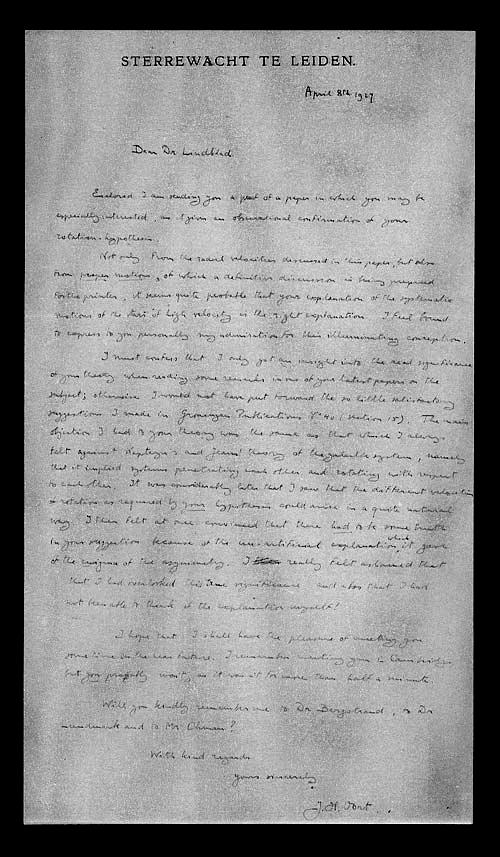 STERREWACHT TE LEIDEN.
April 8th 1927
Dear Dr Lindblad
Enclosed I am sending you a part of a paper in which you may be
especially interested, as it gives an observational confirmation of your
rotation-hypothesis.
Not only from the radial velocities discussed in this paper, but also
from proper motions, of which a definitive discussion is being prepared
for the printer, it seems quite probable that your explanation of the systematic
motions of the stars of high velocity is the right explanation. I feel bound
to express to you personally my admiration for this illuminating conception.
I must confess that I only got an insight into the real significance
of your theory when reading some remarks in one of your latest papers on the
subject; otherwise I would not have put forward the so little satisfactory
suggestions I made in Groningen Publications No 40 (section 15). The main
objection I had to your theory was the same as that which I always
felt against Kapteyn's and Jeans' theory of the galactic system, namely
that it implied systems penetrating each other and rotating with respect
to each other. It was considerably later that I saw that the different velocities
of rotation as required by your hypothesis could arise in a quite natural
way. I then felt at once convinced that there had to be some truth
in your suggestion because of the un-artificial explanation which it gave
of the enigma of the asymmetry. I really felt ashamed that
that I had overlooked this true significance and also that I had
not been able to think of the explanation myself!
I hope that I shall have the pleasure of meeting you
some time in the near future. I remember meeting you in Cambridge
but you probably won't, as it was for more than half a minute.
Will you kindly remember me to Dr Bergstrand, to Dr
Lundmark and to Mr Öhman?
With kind regards
yours sincerely
J. H. Oort.